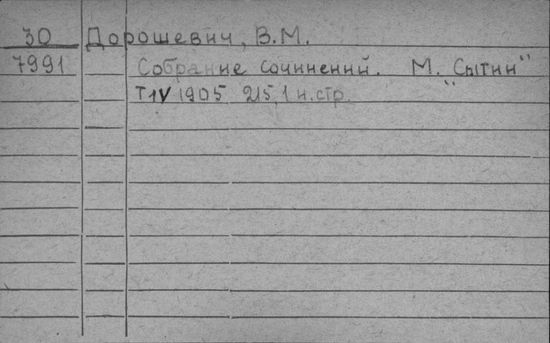 30 Дорошевич, В.М.
7991 Собрание сочинений. М. "Сытин"
Т IV 1905 215,1 н.стр.